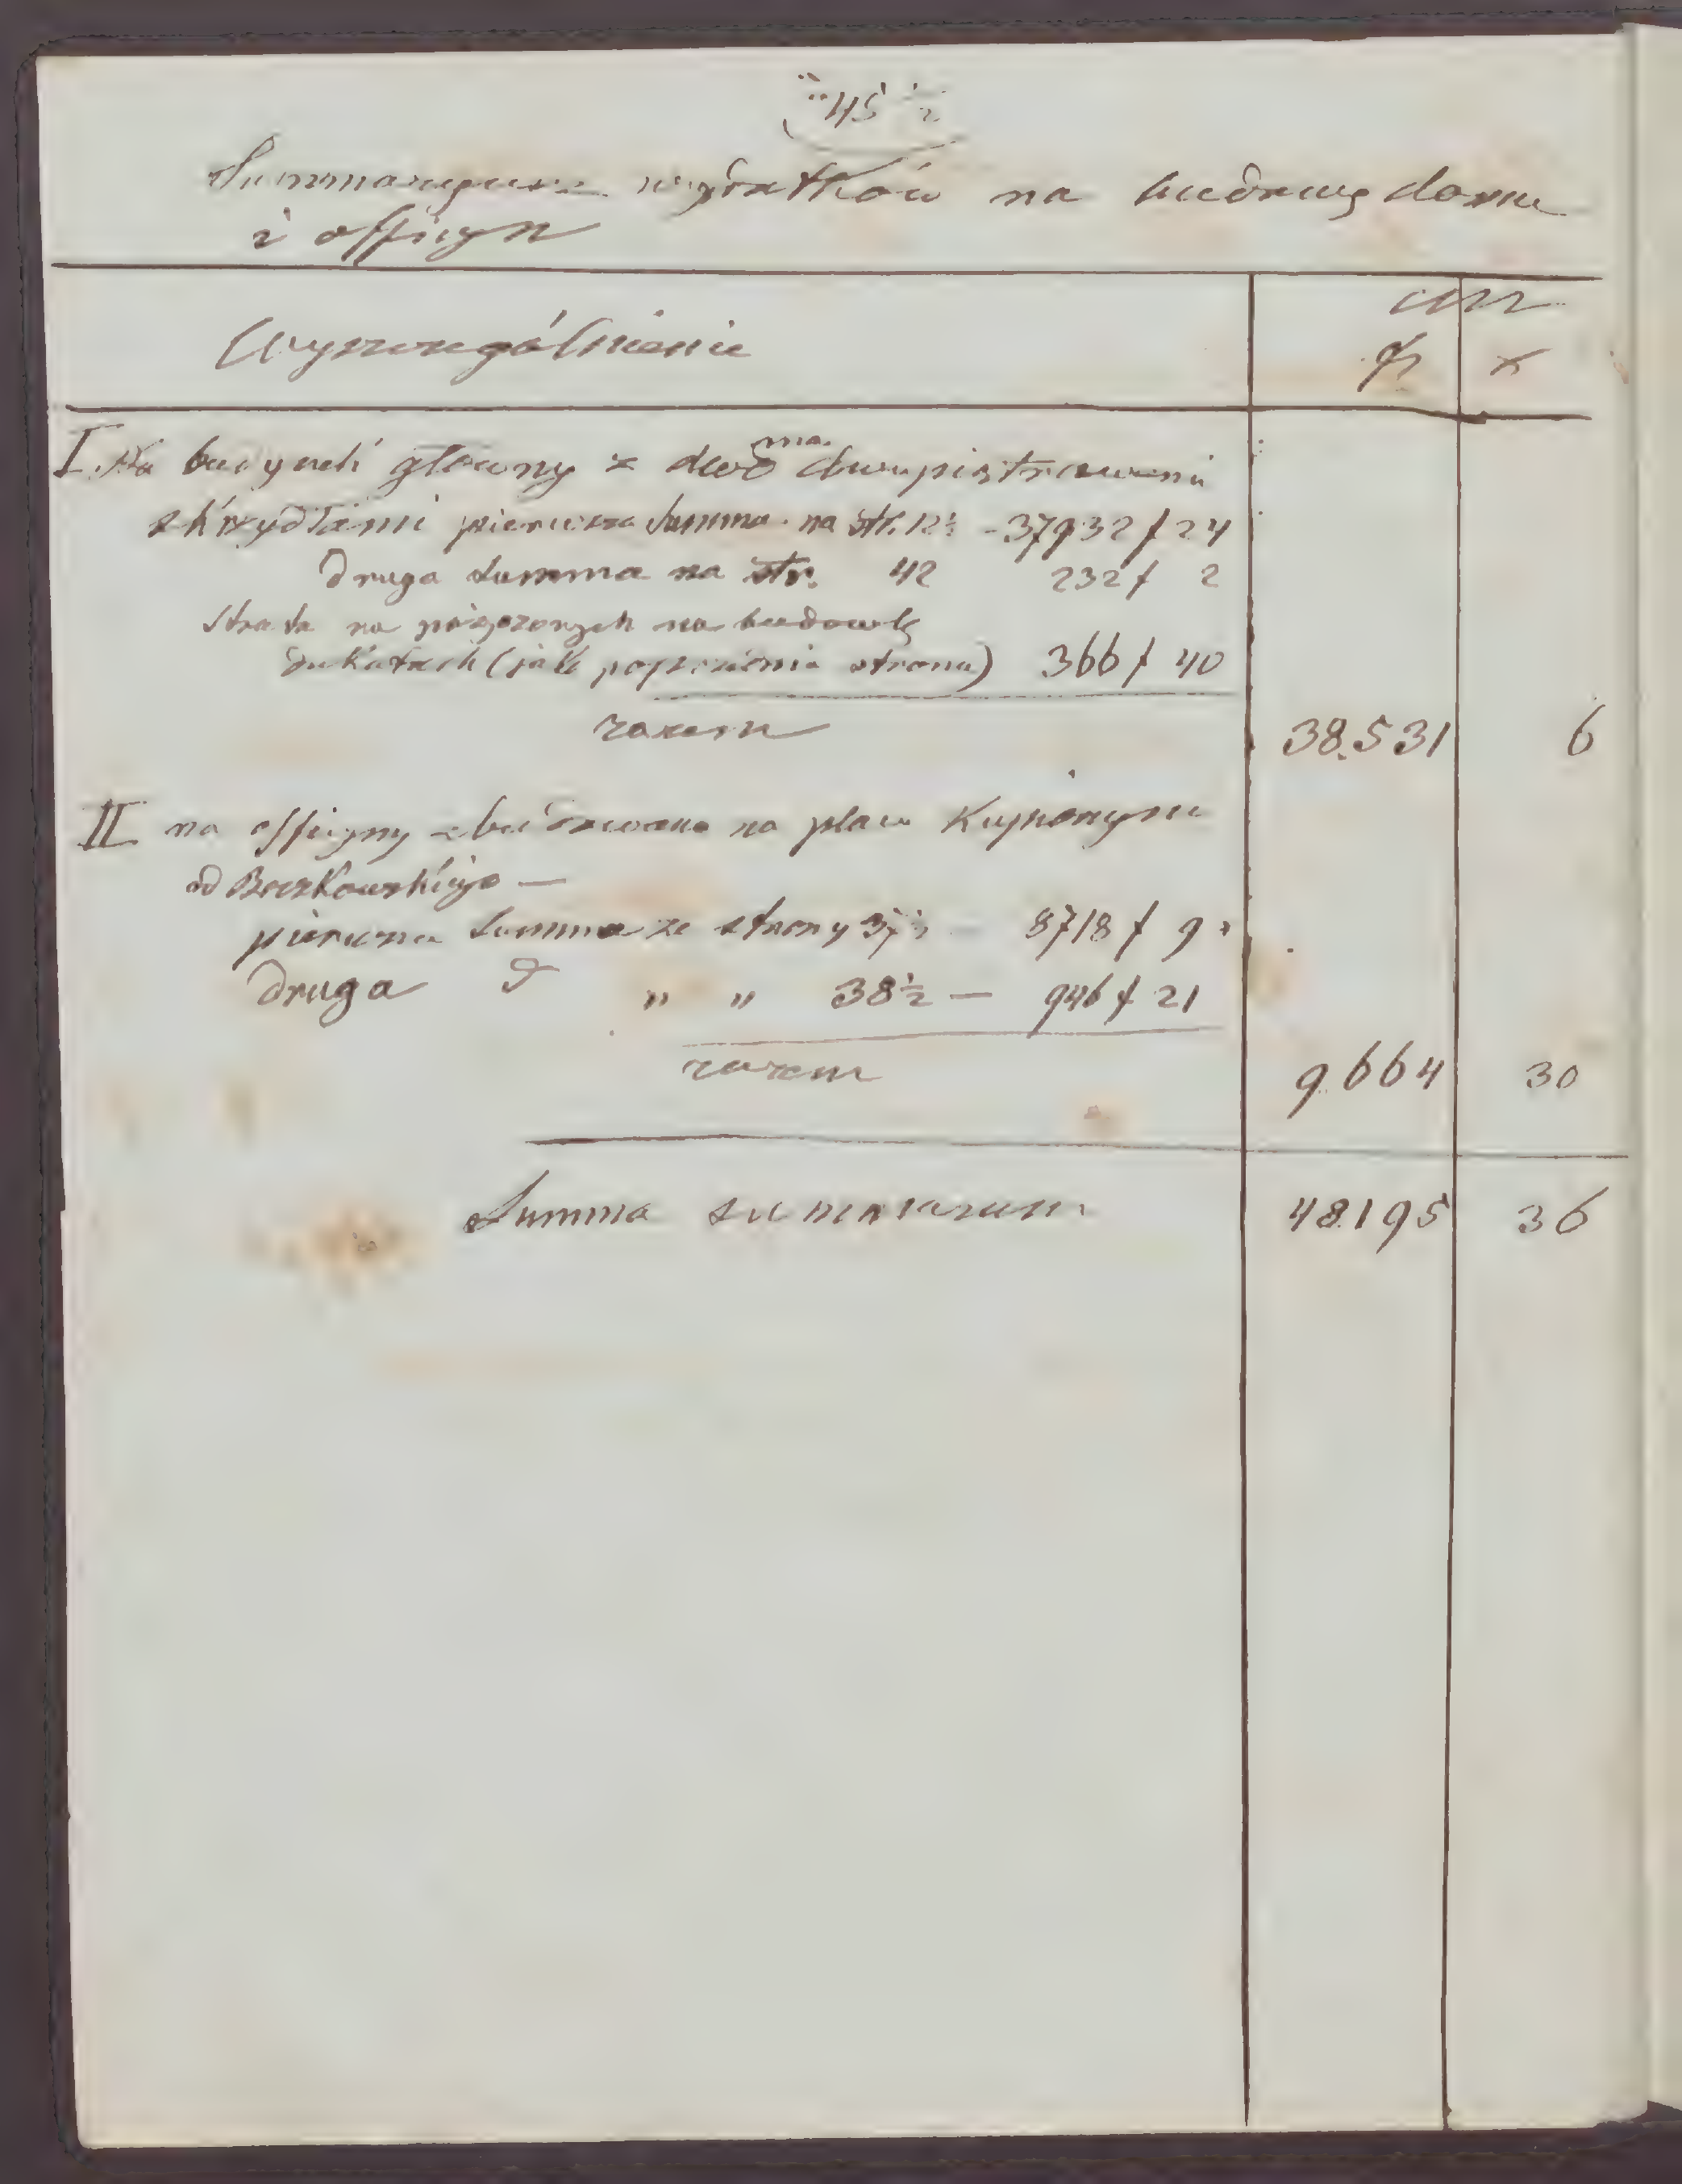 45 ½
Summaryusz wydatków na budowę domu
i officyn
Wyszczególnienie
fr x
I. Na budynek główny z dwoma dwupiętrowemi
skrzydłami pierwsza Summa na str. 12½ - 37932 f 24
druga summa na str. 42 232 f 2
Strata na pożyczonych na budowlę
dukatach (jak poprzednia strona) 366 f 40
razem 38.531 6
II na officyny zbudowane na placu Kupionym
od Boczkowskiego —
pierwsza Summa ze strony 37½ — 8718 f 9
druga d " " 38½ — 946 f 21
razem 9.664 30
Summa summarum 48.195 36